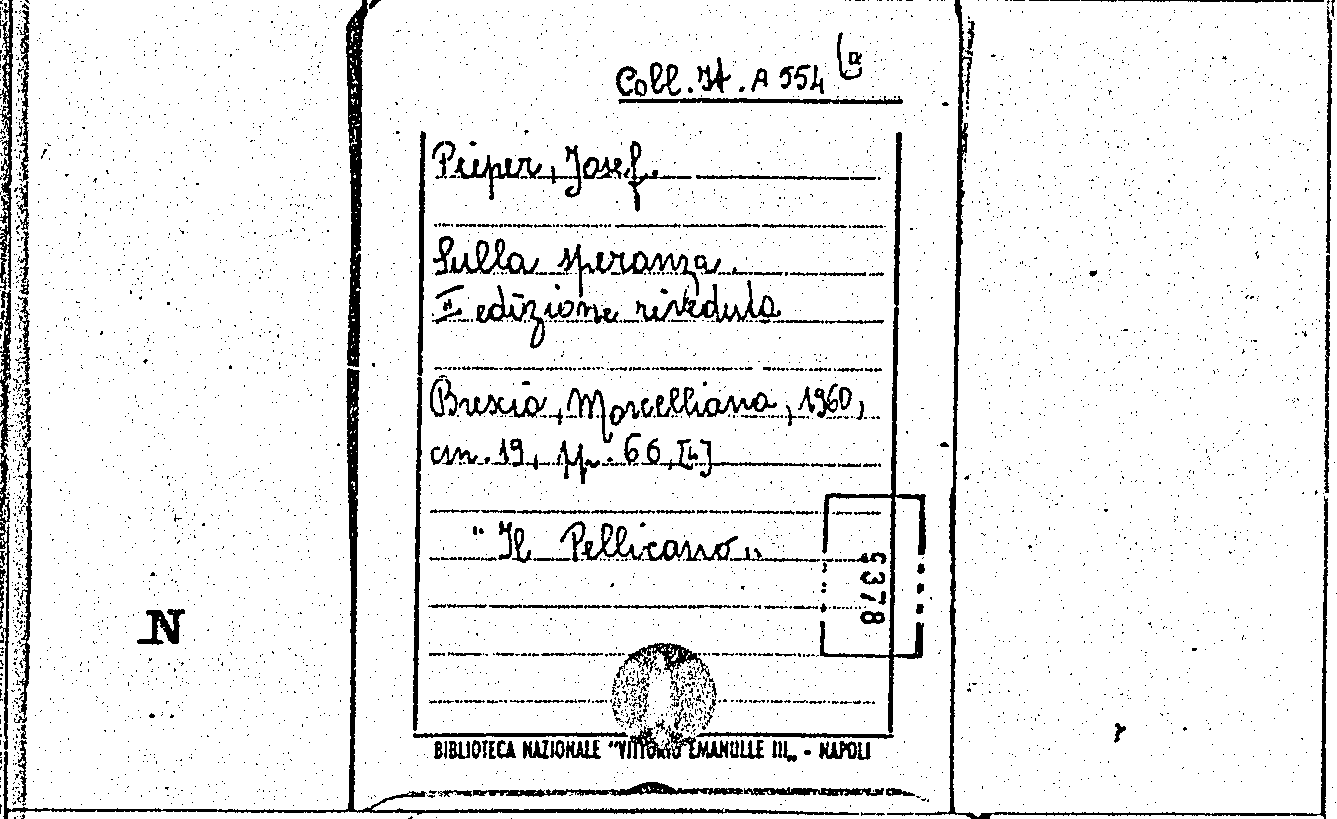 Coll. It. A 554 (a
Pieper, Josef.
Sulla speranza.
IIª edizione riveduta
Brescia, Morcelliana, 1960,
cm. 19, pp. 66, [4]
"Il Pellicano"
9378
N
BIBLIOTECA NAZIONALE "VITTORIO EMANUELE III" - NAPOLI